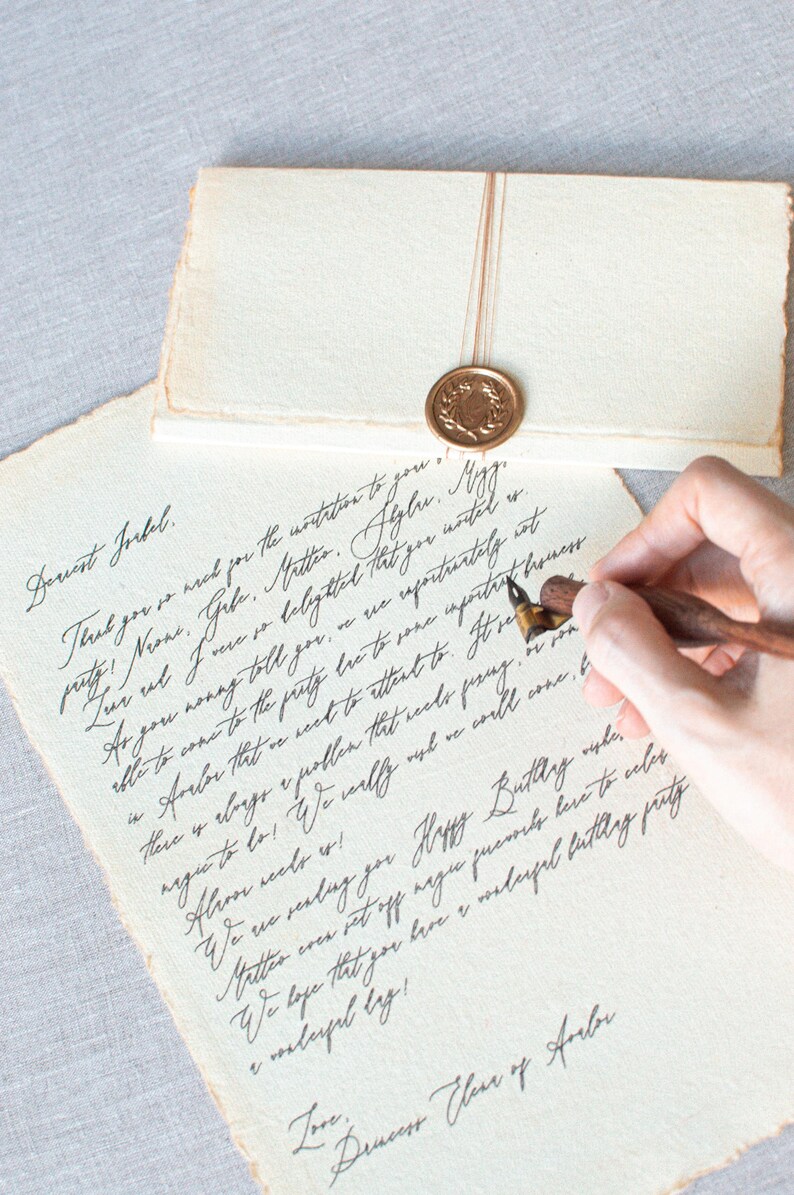 Dearest Isabel,
Thank you so much for the invitation to your
party! Naomi, Gabe, Matteo, Skylar, Migg
Luna and I were so delighted that you invited us.
As your mommy told you, we are unfortunately not
able to come to the party due to some important business
in Avalor that we need to attend to. It se
there is always a problem that needs fixing, or som
magic to do! We really wish we could come, b
Alavor needs us!
We are sending you Happy Birthday wishes
Matteo even set off magic fireworks here to celeb
We hope that you have a wonderful birthday party
a wonderful day!
Love,
Princess Elena of Avalor